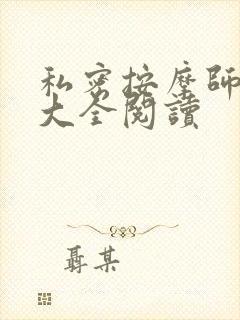 私密按摩師
大全閱讀
聶某